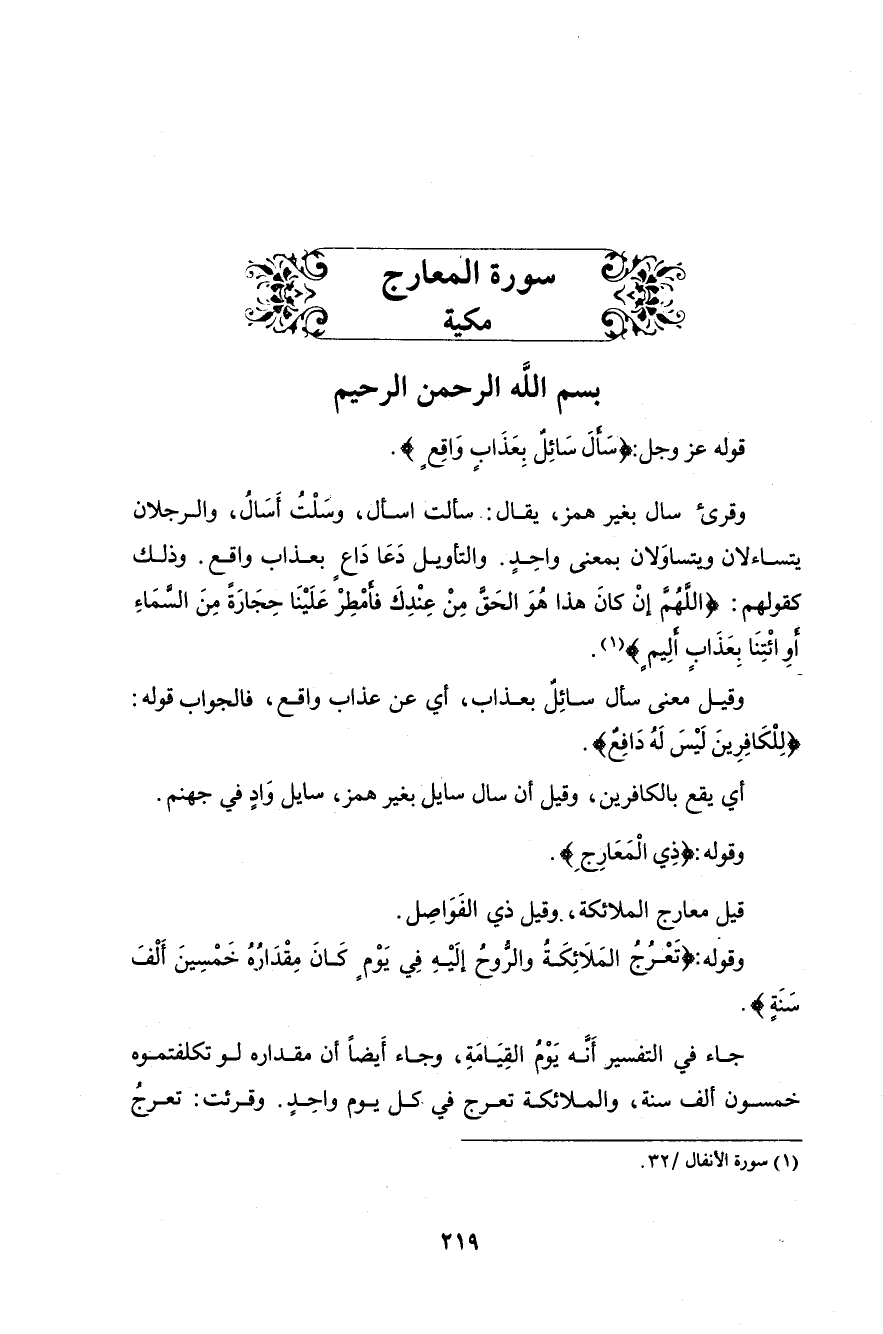 سورة المعارج
مكية
بسم اللَّه الرحمن الرحيم
قوله عز وجل:﴿سَأَلَ سَائِلٌ بِعَذَابٍ وَاقِعٍ﴾.
وقرىء سال بغير همز، يقـال: سألت اسـأل، وسَلْتُ أَسَالُ، والـرجلان
يتسـاءلان ويتساوَلان بمعنى واحِـدٍ. والتأويـل دَعَا دَاعٍ بعـذاب واقـع. وذلـك
كقولهم: ﴿اللَّهُمَّ إنْ كانَ هذا هُوَ الحَقَّ مِنْ عِنْدِكَ فأَمْطِرْ عَلَيْنَا حِجَارَةً مِنَ السَّمَاءِ
أَوِ ائْتِنَا بِعَذَابٍ أَلِيمٍ﴾(١).
وقيـل معنى سأل سـائِلٌ بعـذاب، أي عن عذاب واقـع، فالجواب قوله:
﴿لِلْكَافِرِينَ لَيْسَ لَهُ دَافِعٌ﴾.
أي يقع بالكافرين، وقيل أن سال سايل بغير همز، سايل وَادٍ في جهنم.
وقوله:﴿ذِي الْمَعَارِجِ﴾.
قيل معارج الملائكة، وقيل ذي الفَوَاصِل.
وقوله:﴿تَعْـرُجُ المَلَائِكَـةُ والرُّوحُ إلَيْـهِ فِي يَوْمٍ كَـانَ مِقْدَارُهُ خَمْسِينَ أَلْفَ
سَنَةٍ﴾.
جـاء في التفسير أَنَّـه يَوْمُ القِيَـامَةِ، وجـاء أَيضاً أن مقـداره لـو تكلفتمـوه
خمسـون ألف سنة، والمـلائكـة تعـرج في كـل يـوم واحِـدٍ. وقـرئت: تعـرجُ
(١) سورة الأنفال /٣٢.
٢١٩